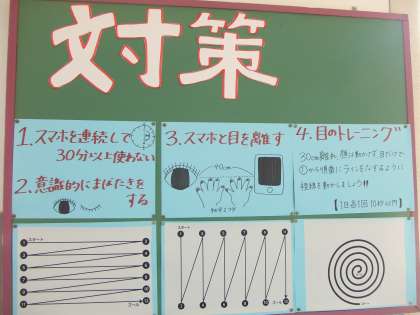 対策
1.スマホを連続して
30分以上使わない
2.意識的にまばたきを
する
3.スマホと目を離す
40cm
4.目のトレーニング
30cm離れ、顔は動かさず目だけで
①から順番にラインをなぞるように
視線を動かしましょう!!
【1日各1回10秒以内】
スタート
ゴール
スタート
ゴール
スタート